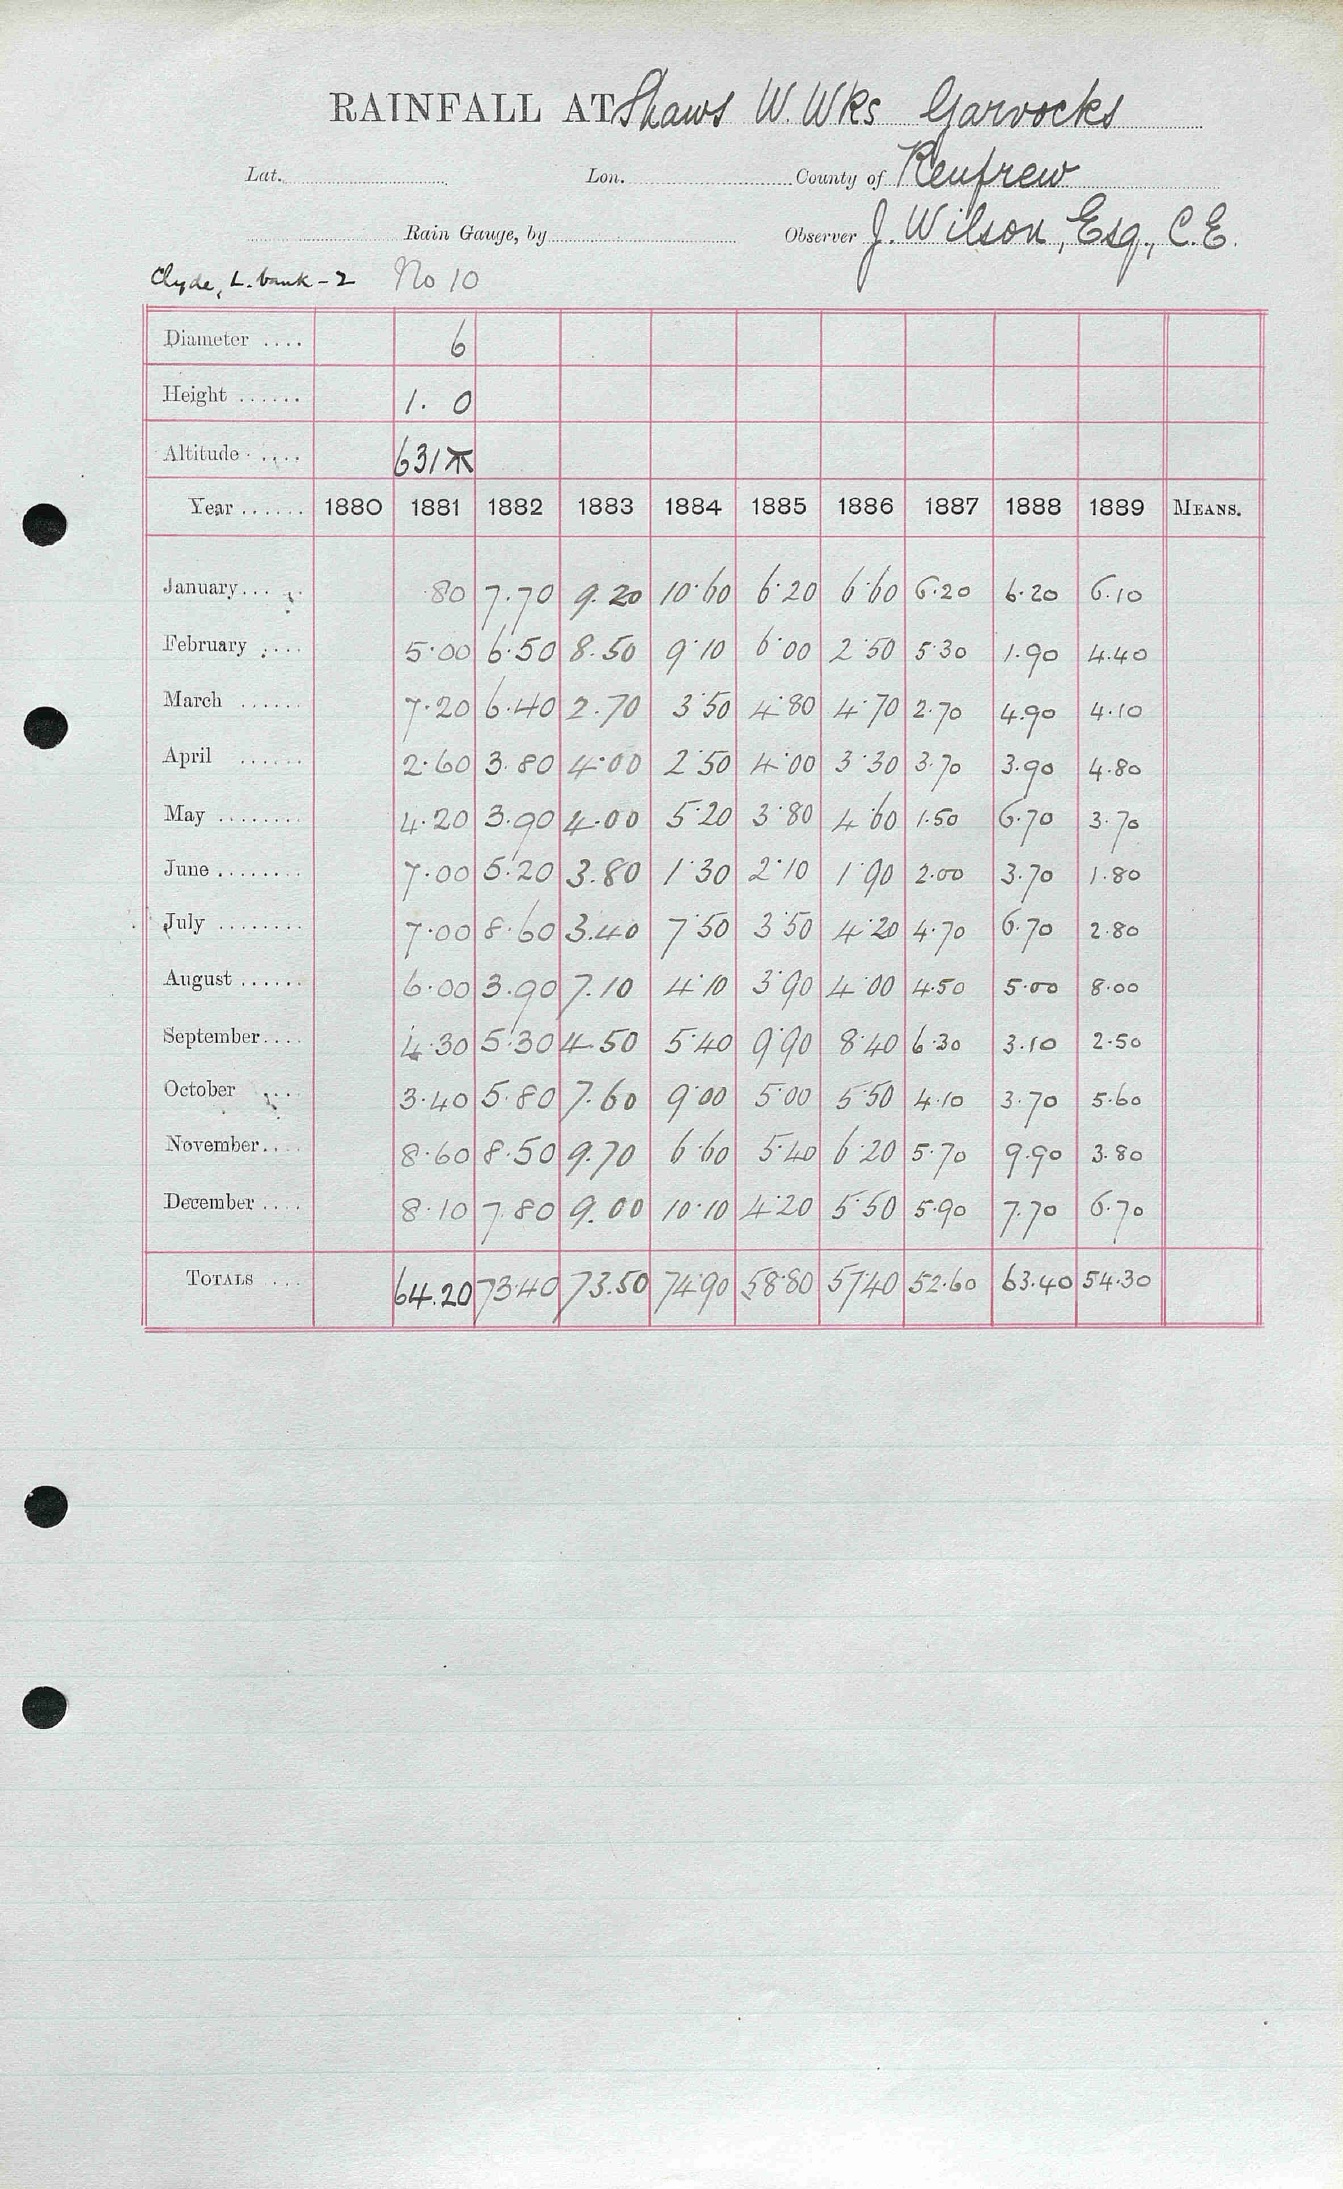 RAINFALL AT Shaws W. Wks Garvocks
Lat. Lon. County of Renfrew
Rain Gauge, by Observer J. Wilson, Esq., C.E.
Clyde, L. bank - 2 No 10
Diameter .... 6
Height ...... 1. 0
Altitude .... 631
Year ...... 1880 1881 1882 1883 1884 1885 1886 1887 1888 1889 MEANS.
January.... .80 7.70 9.20 10.60 6.20 6.60 6.20 6.20 6.10
February .... 5.00 6.50 8.50 9.10 6.00 2.50 5.30 1.90 4.40
March ...... 7.20 6.40 2.70 3.50 4.80 4.70 2.70 4.90 4.10
April ...... 2.60 3.80 4.00 2.50 4.00 3.30 3.70 3.90 4.80
May ........ 4.20 3.90 4.00 5.20 3.80 4.60 1.50 6.70 3.70
June ........ 7.00 5.20 3.80 1.30 2.10 1.90 2.00 3.70 1.80
July ........ 7.00 8.60 3.40 7.50 3.50 4.20 4.70 6.70 2.80
August ...... 6.00 3.90 7.10 4.10 3.90 4.00 4.50 5.00 8.00
September.... 4.30 5.30 4.50 5.40 9.90 8.40 6.30 3.10 2.50
October .... 3.40 5.80 7.60 9.00 5.00 5.50 4.10 3.70 5.60
November.... 8.60 8.50 9.70 6.60 5.40 6.20 5.70 9.90 3.80
December .... 8.10 7.80 9.00 10.10 4.20 5.50 5.90 7.70 6.70
TOTALS ... 64.20 73.40 73.50 74.90 58.80 57.40 52.60 63.40 54.30